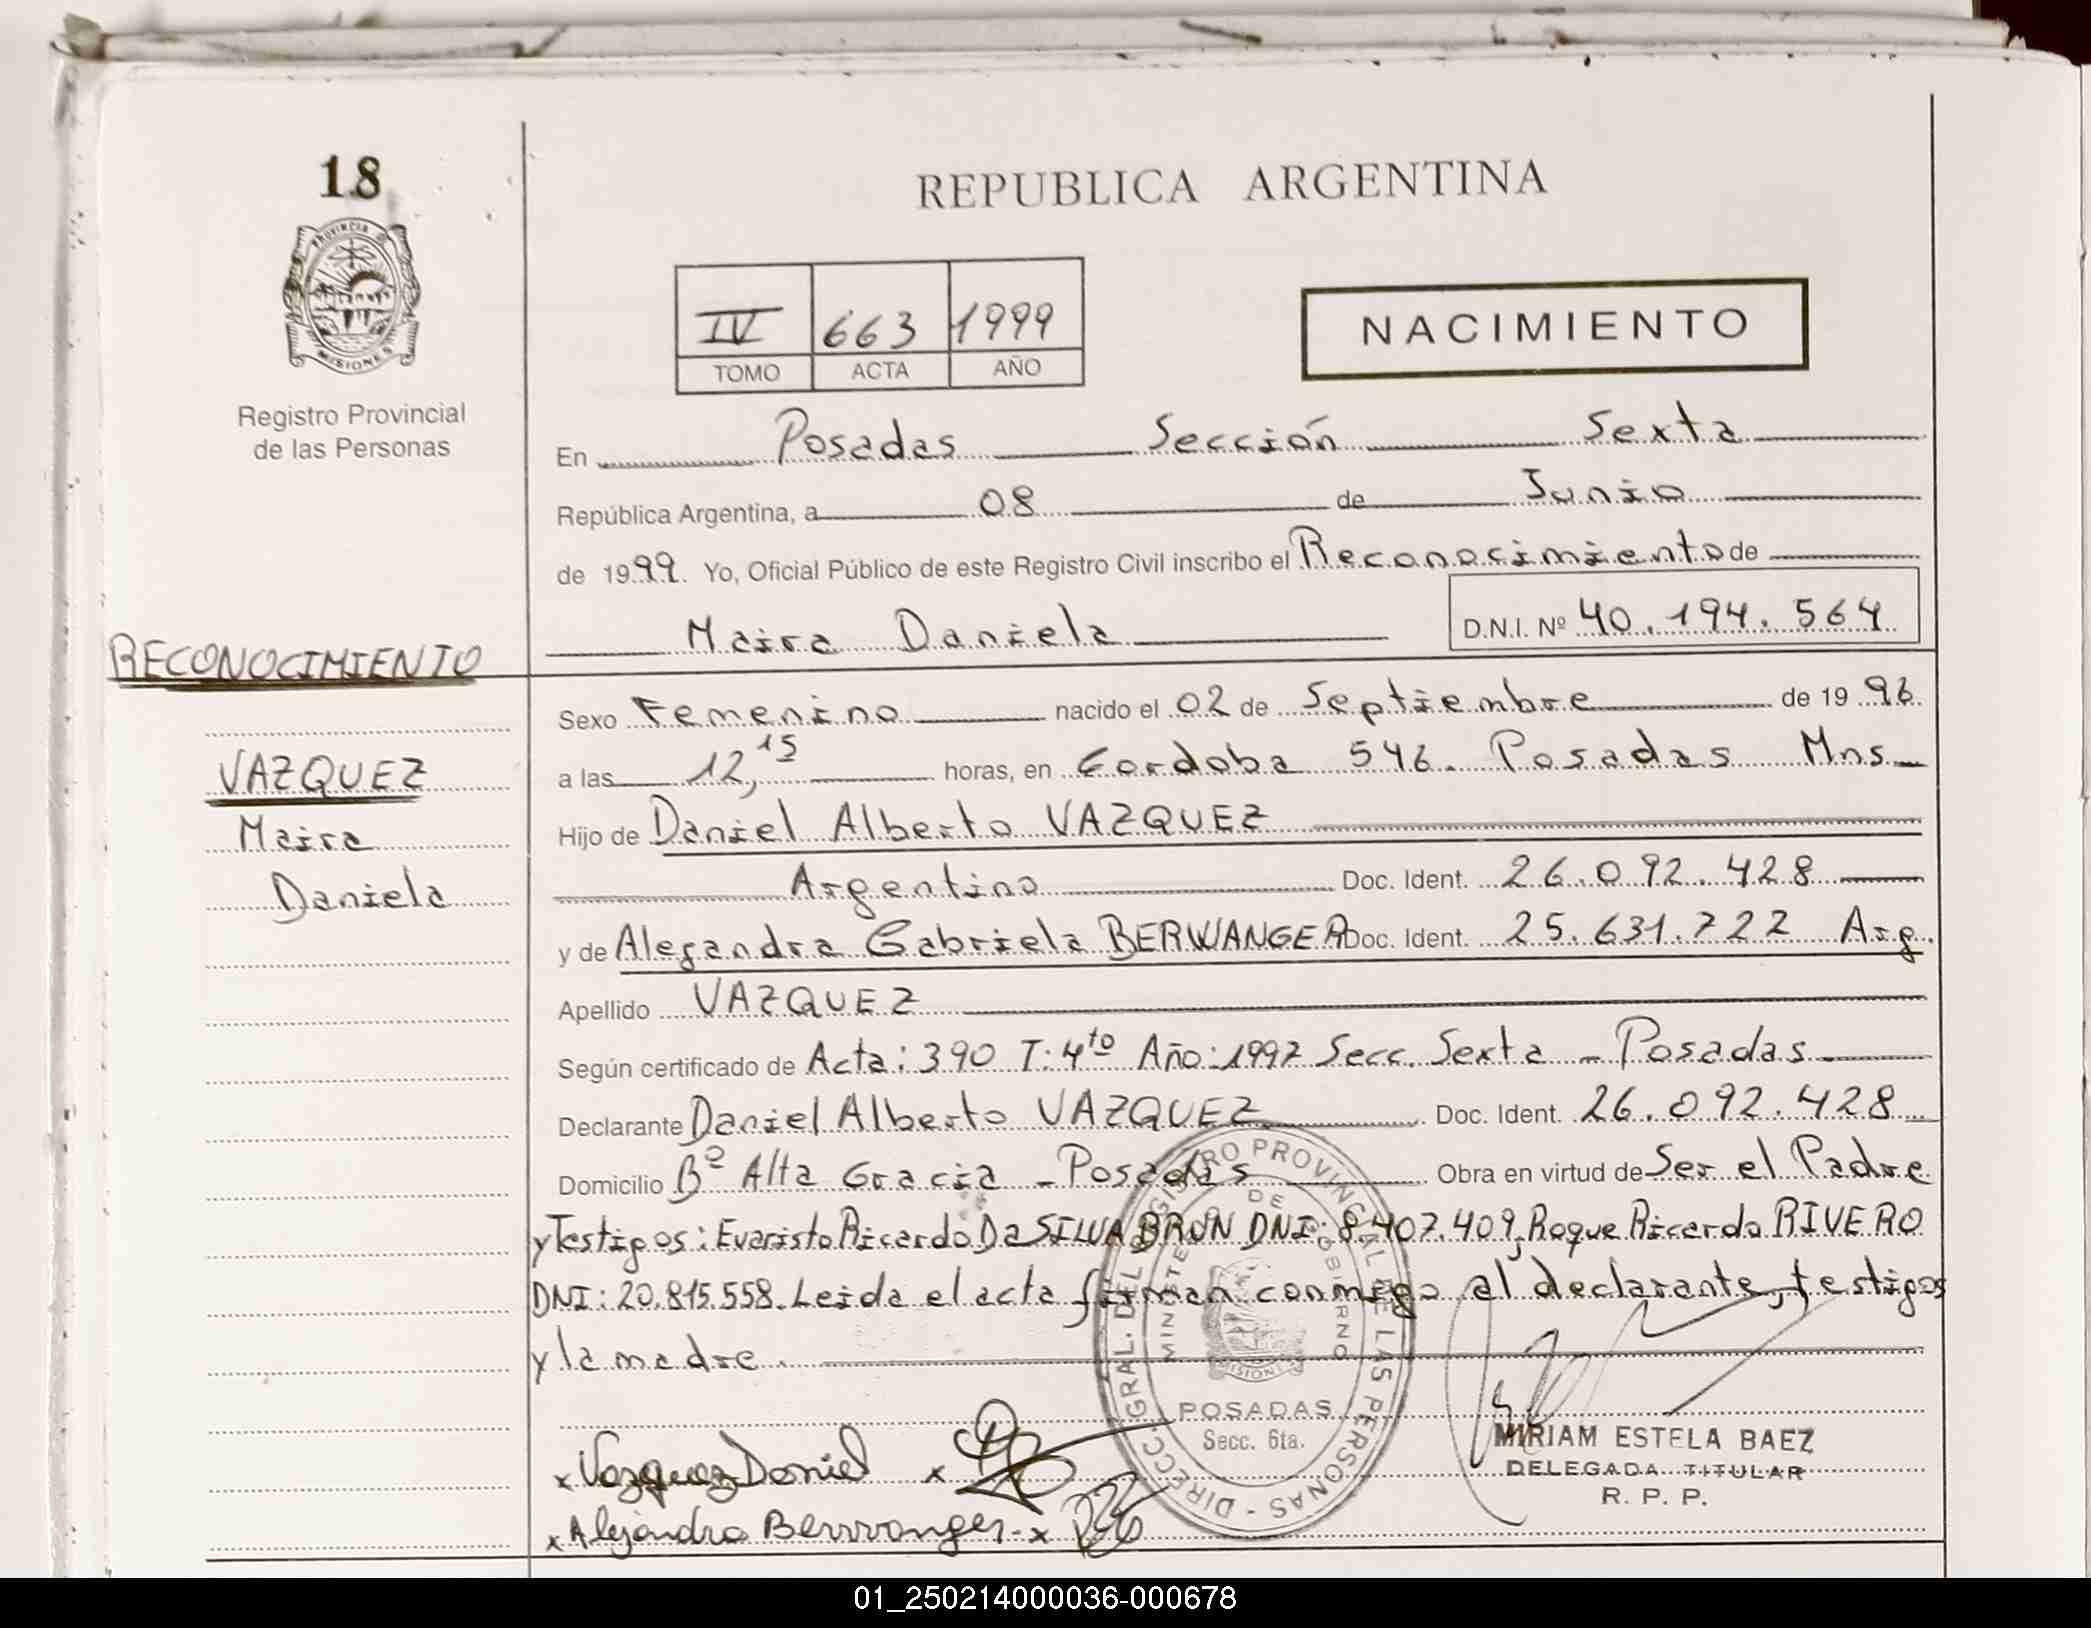 18
REPUBLICA ARGENTINA
PROVINCIA D
MISIONES
Registro Provincial
de las Personas
IV 663 1999
TOMO ACTA AÑO
NACIMIENTO
En Posadas Sección Sexta
República Argentina, a 08 de Junio
de 1999. Yo, Oficial Público de este Registro Civil inscribo el Reconocimiento de
Maira Daniela D.N.I. Nº 40.194.564
RECONOCIMIENTO
VAZQUEZ
Maira
Daniela
Sexo Femenino nacido el 02 de Septiembre de 1996.
a las 12,15 horas, en Cordoba 546. Posadas Mns
Hijo de Daniel Alberto VAZQUEZ
Argentino Doc. Ident. 26.092.428
y de Alejandra Gabriela BERWANGER Doc. Ident. 25.631.722 Arg.
Apellido VAZQUEZ
Según certificado de Acta: 390 T: 4to Año: 1997 Secc. Sexta - Posadas
Declarante Daniel Alberto VAZQUEZ Doc. Ident. 26.092.428
Domicilio Bº Alta Gracia - Posadas Obra en virtud de Ser el Padre
y Testigos: Evaristo Ricardo Da SILVA BRUN DNI: 8.407.409, Roque Ricardo RIVERO
DNI: 20.815.558. Leida el acta firman conmigo al declarante, testigos
y la madre.
DIRECC. GRAL. DEL REGISTRO PROVINCIAL DE LAS PERSONAS -
MINISTERIO DE GOBIERNO
MISIONES
POSADAS
Secc. 6ta.
x Vazquez Daniel x
x Alejandra Berwanger - x
MIRIAM ESTELA BAEZ
DELEGADA TITULAR
R. P. P.
01_250214000036-000678